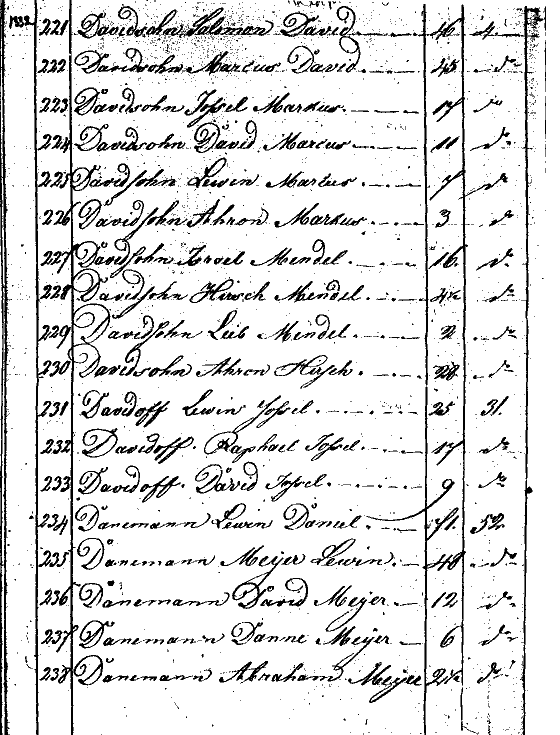 221 Davidsohn Salomon David 46 4
222 Davidsohn Marcus David 45 do
223 Davidsohn Jossel Markus 17 do
224 Davidsohn David Marcus 11 do
225 Davidsohn Lewin Marcus 7 do
226 Davidsohn Ahron Markus 3 do
227 Davidsohn Israel Mendel 16 do
228 Davidsohn Hirsch Mendel do
229 Davidsohn Leib Mendel 2 do
230 Davidsohn Ahron Hirsch 28 do
231 Davidoff Lewin Jossel 25 31
232 Davidoff Raphael Jossel 17 do
233 Davidoff David Jossel 9 do
234 Danemann Lewin Daniel 71 52
235 Danemann Meyer Lewin 48 do
236 Danemann David Meyer 12 do
237 Danemann Danne Meyer 6 do
238 Danemann Abraham Meyer 2½ do